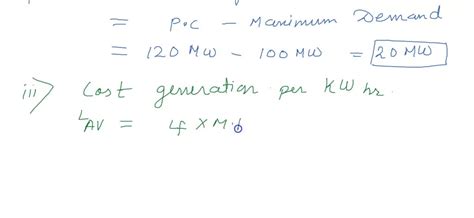 = P.C - Maximum Demand
= 120 MW - 100 MW = 20 MW
iii) Cost generation per KW hr.
LAV = Lf x M.D